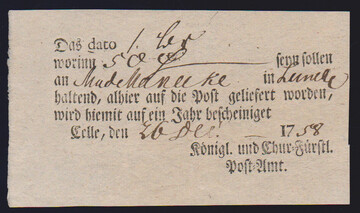 Das dato 1. Br
worinn 50 seyn sollen
an Mad Manecke in Lunebl
haltend, alhier auf die Post geliefert worden,
wird hiemit auf ein Jahr bescheiniget
Celle, den 26 Dec. 1758
Königl. und Chur-Fürstl.
Post-Amt.